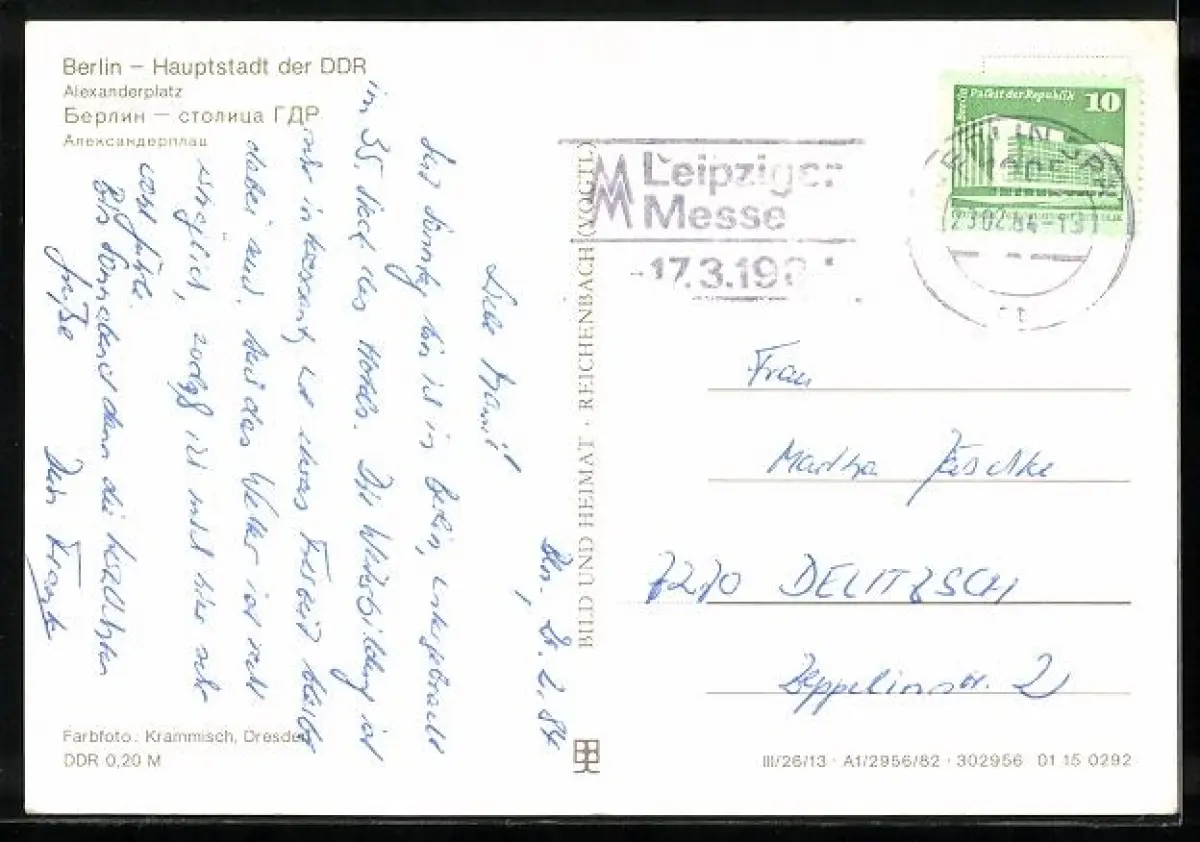 Berlin – Hauptstadt der DDR
Alexanderplatz
Берлин – столица ГДР
Александерплац
Palast der Republik 10
Leipziger
Messe
-17.3.198
23.02.84-13
Bln., 21.2.84
Liebe Mami!
Seit Sonntag bin ich in Berlin, untergebracht
im 35. Stock des Hotels. Die Weiterbildung ist
sehr interessant, etwas Freizeit bleibt
dabei auch. das Wetter ist recht
ich mich hier sehr
wohl fühle.
Bis Sonnabend dann die herzlichsten
Grüße
Dein Frank
BILD UND HEIMAT · REICHENBACH (VOGTL)
Frau
Martha Jäschke
7270 DELITZSCH
Zeppelinstr. 2
Farbfoto: Krammisch, Dresden
DDR 0,20 M
III/26/13 · A1/2956/82 · 302956 01 15 0292